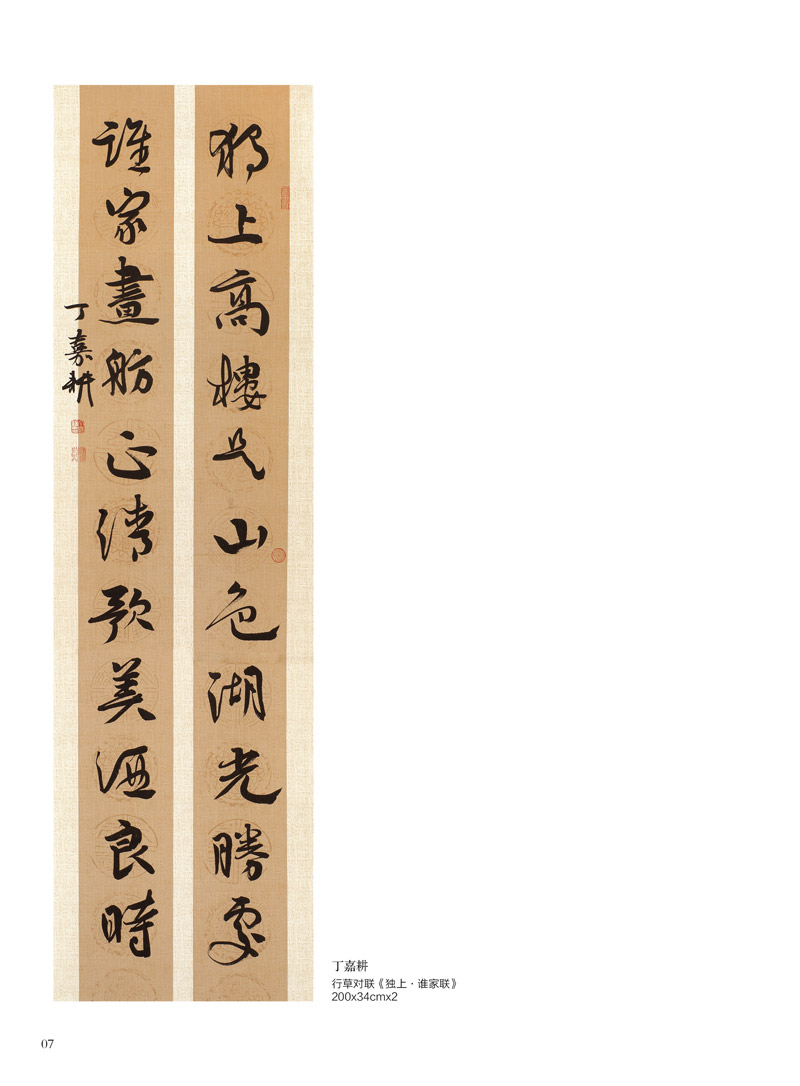 獨上高樓是山色湖光勝處
誰家畫舫正清歌美酒良時
丁嘉耕
丁嘉耕
行草对联《独上·谁家联》
200x34cmx2
07